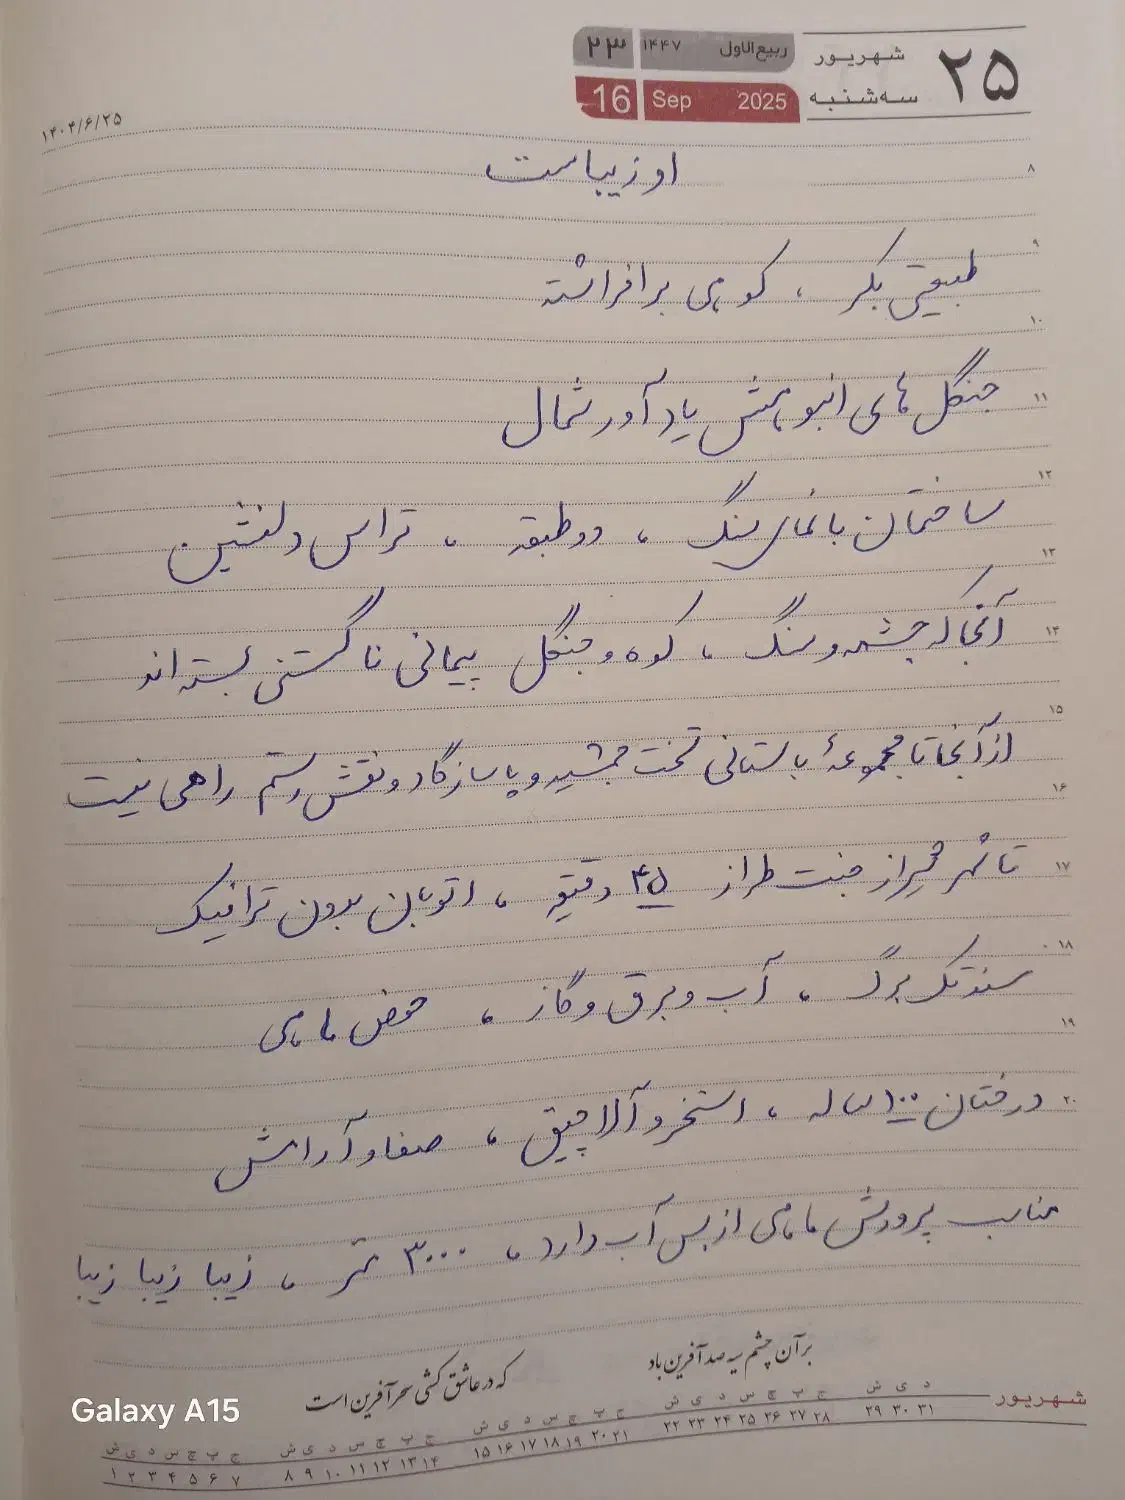 ۲۵ شهریور سه‌شنبه
ربیع‌الاول ۱۴۴۷ ۲۳
16 Sep 2025
۱۴۰۴/۶/۲۵
او زیباست
۸
۹
طبیعتی بکر ، کوهی برافراشته
۱۰
جنگل های انبوهش یادآور شمال
۱۱
۱۲
ساختمان با نمای سنگ ، دو طبقه ، تراس دلنشین
۱۳
آنجا که چشمه و سنگ ، کوه و جنگل پیمانی ناگسستنی بسته اند
۱۴
۱۵
از آنجا تا مجموعهٔ باستانی تخت جمشید و پاسارگاد و نقش رستم راهی نیست
۱۶
تا شهر شیراز جنت طراز ۴۵ دقیقه ، اتوبان بدون ترافیک
۱۷
۱۸
سند تک برگ ، آب و برق و گاز ، حوض ماهی
۱۹
درختان ۱۰۰ ساله ، استخر و آلاچیق ، صفا و آرامش
۲۰
مناسب پرورش ماهی از بس آب دارد ، ۳۰۰۰ متر ، زیبا زیبا زیبا
بر آن چشم سیه صد آفرین باد
که در عاشق کشی سحرآفرین است
شهریور
د ی ش ج پ چ س د ی ش ج پ چ س د ی ش ج پ چ س د ی ش ج پ چ س د ی ش
۳۱ ۳۰ ۲۹ ۲۸ ۲۷ ۲۶ ۲۵ ۲۴ ۲۳ ۲۲ ۲۱ ۲۰ ۱۹ ۱۸ ۱۷ ۱۶ ۱۵ ۱۴ ۱۳ ۱۲ ۱۱ ۱۰ ۹ ۸ ۷ ۶ ۵ ۴ ۳ ۲ ۱
Galaxy A15